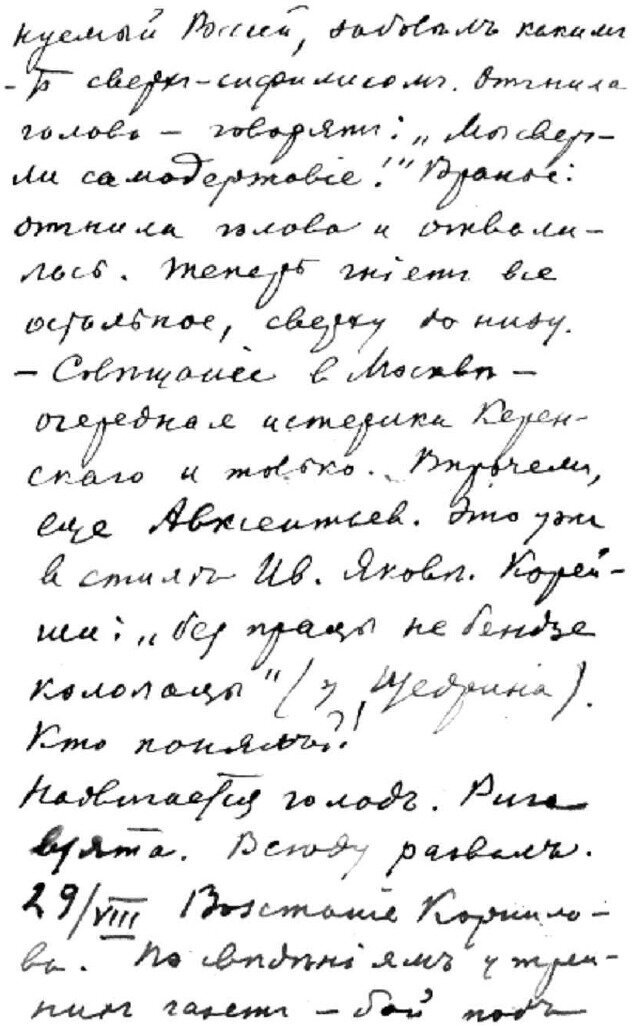 нуемый Россіей, заболѣлъ какимъ
-то сверх-сифилисомъ. Отгнила
голова — говорятъ: „Мы сверг-
ли самодержавіе!" Вранье:
отгнила голова и отвали-
лась. Теперь гніетъ все
остальное, сверху до низу.
— Совѣщаніе в Москвѣ —
очередная истерика Керен-
скаго и только. Впрочемъ,
еще Авксентьев. Это уже
в стилѣ Ив. Яковл. Корей-
ши: „без працы не бендзе
кололацы" (у Щедрина).
Кто понялъ?!
Надвигается голодъ. Рига
взята. Всюду развалъ.
29/VIII Возстаніе Корнило-
ва. По свѣдѣніямъ утрен-
нихъ газетъ — бой подъ